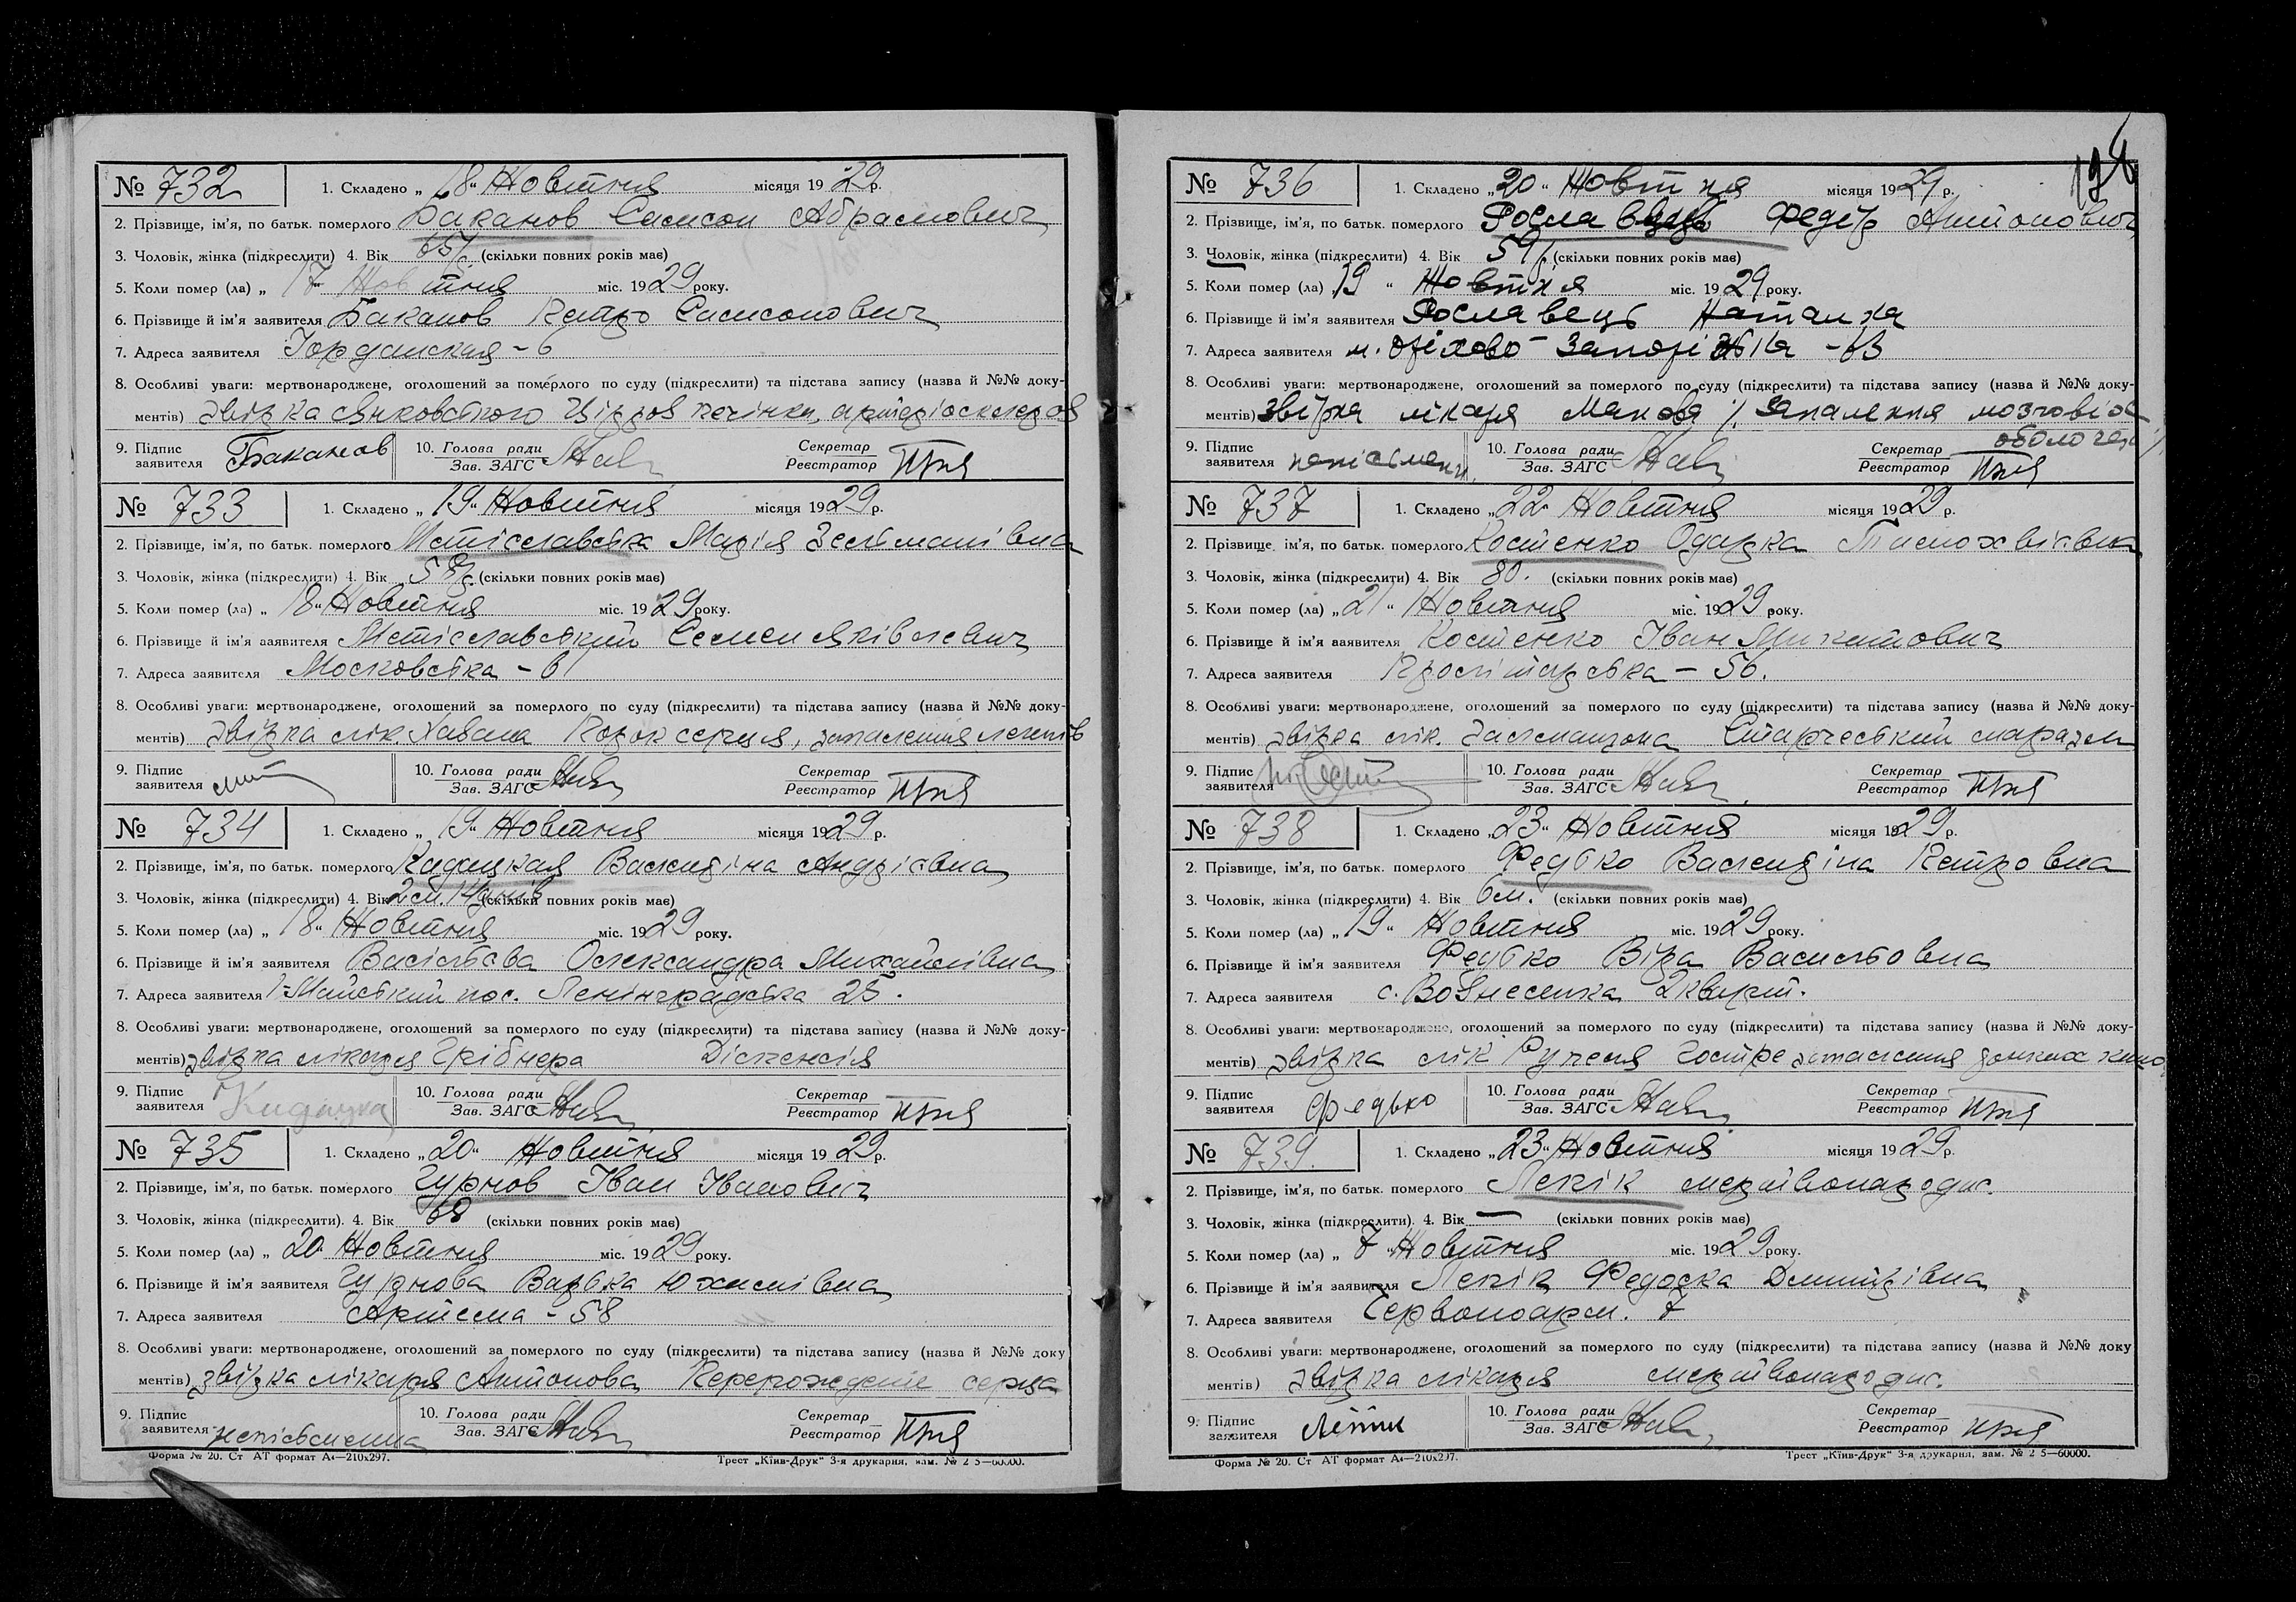 № 732 1. Складено „18“ Жовтня місяця 1929 р.
2. Прізвище, ім'я, по батьк. померлого Баканов Самсон Абрамович
3. Чоловік, жінка (підкреслити) 4. Вік 65 (скільки повних років має)
5. Коли помер (ла) „17“ Жовтня міс. 1929 року.
6. Прізвище й ім'я заявителя Баканов Петро Самсонович
7. Адреса заявителя Горданская - 6
8. Особливі уваги: мертвонароджене, оголошений за померлого по суду (підкреслити) та підстава запису (назва й №№ доку-
ментів) звідка Янковського Цірроз печінки, артеріосклероз
9. Підпис заявителя Баканов 10. Голова ради Зав. ЗАГС Секретар Реєстратор
№ 733 1. Складено „19“ Жовтня місяця 1929 р.
2. Прізвище, ім'я, по батьк. померлого Мстіславська Марія Зельманівна
3. Чоловік, жінка (підкреслити) 4. Вік 58 (скільки повних років має)
5. Коли помер (ла) „18“ Жовтня міс. 1929 року.
6. Прізвище й ім'я заявителя Мстіславський Семен Яківлевич
7. Адреса заявителя Московська - 6
8. Особливі уваги: мертвонароджене, оголошений за померлого по суду (підкреслити) та підстава запису (назва й №№ доку-
ментів) звідка лік. Хавана Порок серця, запалення легенів
9. Підпис заявителя 10. Голова ради Зав. ЗАГС Секретар Реєстратор
№ 734 1. Складено „19“ Жовтня місяця 1929 р.
2. Прізвище, ім'я, по батьк. померлого Кадацкая Валентіна Андрієвна
3. Чоловік, жінка (підкреслити) 4. Вік 2 м. 14 днів (скільки повних років має)
5. Коли помер (ла) „18“ Жовтня міс. 1929 року.
6. Прізвище й ім'я заявителя Васільєва Олександра Михайлівна
7. Адреса заявителя 1-Майський пос. Ленінградська 25.
8. Особливі уваги: мертвонароджене, оголошений за померлого по суду (підкреслити) та підстава запису (назва й №№ доку-
ментів) звідка лікаря Грібнера Діспепсія
9. Підпис заявителя 10. Голова ради Зав. ЗАГС Секретар Реєстратор
№ 735 1. Складено „20“ Жовтня місяця 1929 р.
2. Прізвище, ім'я, по батьк. померлого Чурнов Іван Іванович
3. Чоловік, жінка (підкреслити). 4. Вік 68 (скільки повних років має)
5. Коли помер (ла) „20“ Жовтня міс. 1929 року.
6. Прізвище й ім'я заявителя Чурнова Варька Юхимівна
7. Адреса заявителя Артема - 58
8. Особливі уваги: мертвонароджене, оголошений за померлого по суду (підкреслити) та підстава запису (назва й №№ доку
ментів) звідка лікаря Антонова Перерождение серца
9. Підпис заявителя непісьменна 10. Голова ради Зав. ЗАГС Секретар Реєстратор
Форма № 20. Ст АТ формат А4—210х297. Трест „Київ-Друк“ 3-я друкарня, зам. № 2 5—60000.
198
№ 736 1. Складено „20“ Жовтня місяця 1929 р.
2. Прізвище, ім'я, по батьк. померлого Рославець Федір Антонович
3. Чоловік, жінка (підкреслити) 4. Вік 59 (скільки повних років має)
5. Коли помер (ла) „19“ Жовтня міс. 1929 року.
6. Прізвище й ім'я заявителя Рославець Наталка
7. Адреса заявителя м. Оріхово - Запоріжжа - 63
8. Особливі уваги: мертвонароджене, оголошений за померлого по суду (підкреслити) та підстава запису (назва й №№ доку-
ментів) звідка лікаря Запалення мозговіх
оболочек
9. Підпис заявителя непісьмен. 10. Голова ради Зав. ЗАГС Секретар Реєстратор
№ 737 1. Складено „22“ Жовтня місяця 1929 р.
2. Прізвище, ім'я, по батьк. померлого Костенко Одарка
3. Чоловік, жінка (підкреслити) 4. Вік 80. (скільки повних років має)
5. Коли помер (ла) „21“ Жовтня міс. 1929 року.
6. Прізвище й ім'я заявителя Костенко Іван Микитович
7. Адреса заявителя Пролітарська - 56.
8. Особливі уваги: мертвонароджене, оголошений за померлого по суду (підкреслити) та підстава запису (назва й №№ доку-
ментів) звідка лік. Старческий маразм
9. Підпис заявителя 10. Голова ради Зав. ЗАГС Секретар Реєстратор
№ 738 1. Складено „23“ Жовтня місяця 1929 р.
2. Прізвище, ім'я, по батьк. померлого Федько Валентіна Петровна
3. Чоловік, жінка (підкреслити) 4. Вік 6 м. (скільки повних років має)
5. Коли помер (ла) „19“ Жовтня міс. 1929 року.
6. Прізвище й ім'я заявителя Федько Віра Васильовна
7. Адреса заявителя с. Вознесенка 2 кварт.
8. Особливі уваги: мертвонароджене, оголошений за померлого по суду (підкреслити) та підстава запису (назва й №№ доку-
ментів) звідка лік Гостре запалення тонких
9. Підпис заявителя Федько 10. Голова ради Зав. ЗАГС Секретар Реєстратор
№ 739. 1. Складено „23“ Жовтня місяця 1929 р.
2. Прізвище, ім'я, по батьк. померлого Лепік мертвонародж.
3. Чоловік, жінка (підкреслити). 4. Вік — (скільки повних років має)
5. Коли помер (ла) „7“ Жовтня міс. 1929 року.
6. Прізвище й ім'я заявителя Лепік Федоска Дмитрівна
7. Адреса заявителя Червоноарм. 7
8. Особливі уваги: мертвонароджене, оголошений за померлого по суду (підкреслити) та підстава запису (назва й №№ доку
ментів) звідка лікаря мертвонародж.
9. Підпис заявителя 10. Голова ради Зав. ЗАГС Секретар Реєстратор
Форма № 20. Ст АТ формат А4—210х297. Трест „Київ-Друк“ 3-я друкарня, зам. № 2 5—60000.